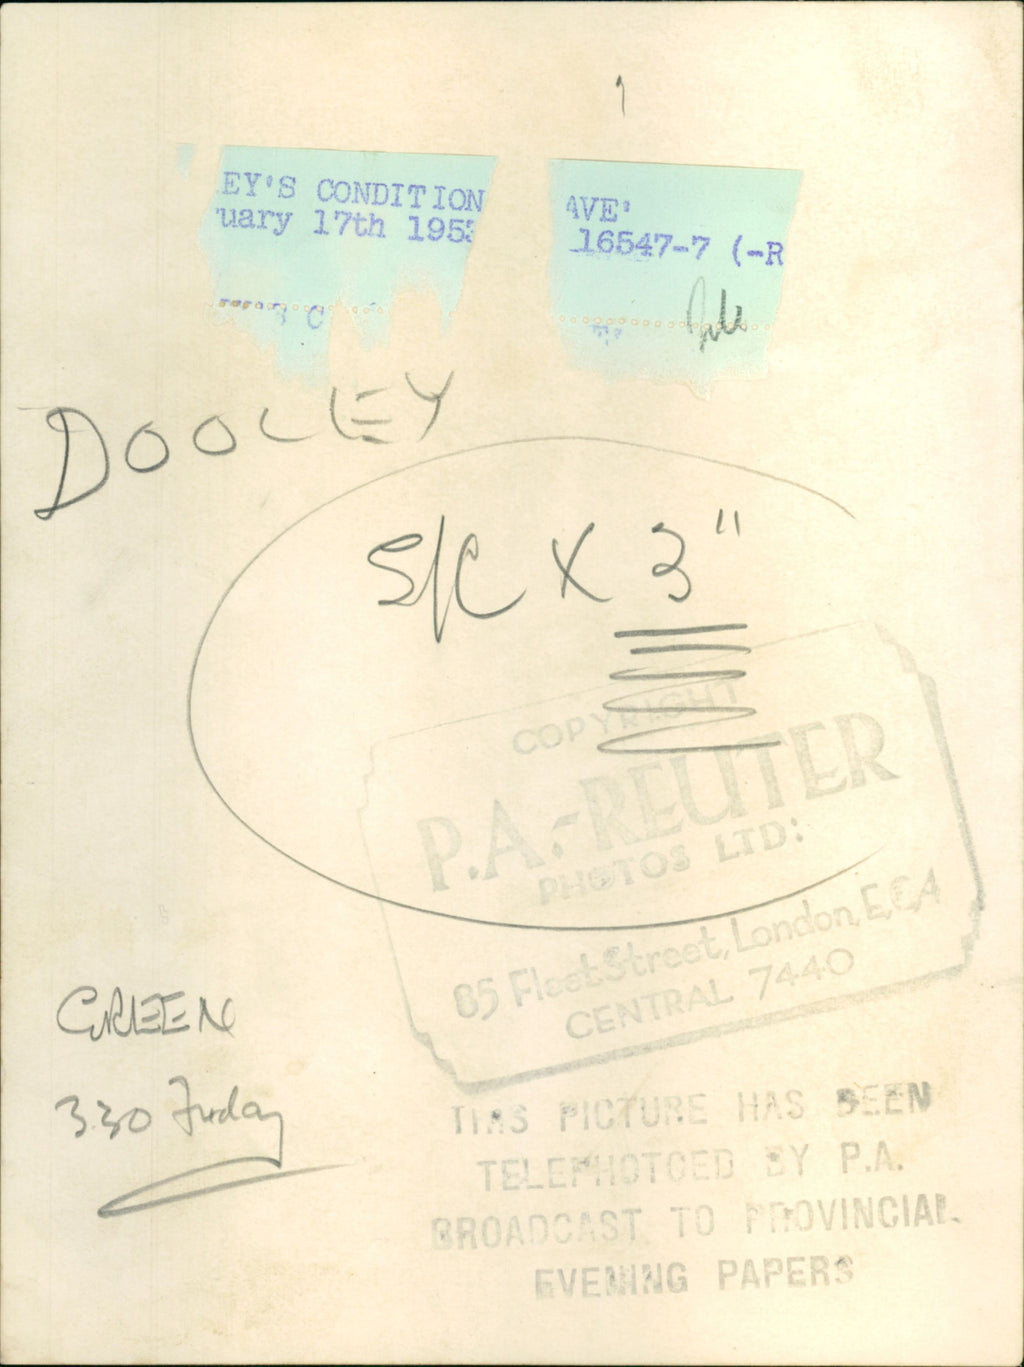 EY'S CONDITION
uary 17th 195
AVE'
16547-7 (-R
DOOLEY
S/C X 3"
COPYRIGHT
P.A.-REUTER
PHOTOS LTD:
85 Fleet Street, London, E.C.4
CENTRAL 7440
GREEN
3.30 Friday
THIS PICTURE HAS BEEN
TELEPHOTOED BY P.A.
BROADCAST TO PROVINCIAL
EVENING PAPERS